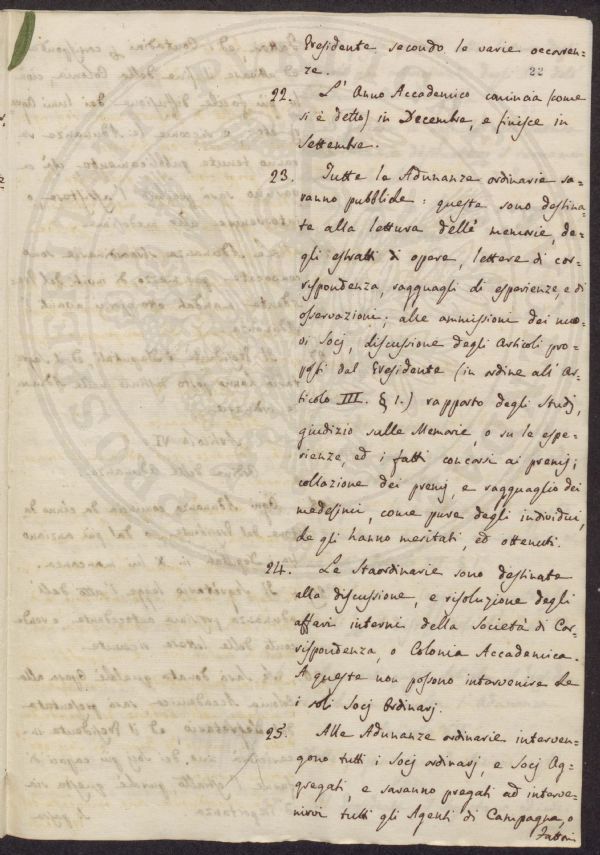 Presidente secondo le varie occorren=
ze. 22
22. L'Anno Accademico comincia (come
si è detto) in Decembre, e finisce in
Settembre.
23. Tutte le Adunanze ordinarie sa=
ranno pubbliche: queste sono destina=
te alla lettura delle memorie, de=
gli estratti di opere, lettere di cor=
rispondenza, ragguagli di esperienze, e di
osservazioni; alle ammissioni dei nuo=
vi Socj, discussione degli Articoli pro=
posti dal Presidente (in ordine all'Ar=
ticolo III. § 1.) rapporto degli Studj,
giudizio sulle Memorie, o su le espe=
rienze, ed i fatti concorsi ai premj;
collazione dei premj, e ragguaglio dei
medesimi, come pure degli individui,
che gli hanno meritati, ed ottenuti.
24. Le Staordinarie sono destinate
alla discussione, e risoluzione degli
affari interni della Società di Cor=
rispondenza, o Colonia Accademica.
A queste non possono intervenire che
i soli Socj Ordinarj.
25. Alle Adunanze ordinarie interven=
gono tutti i Socj ordinarj, e Socj Ag=
gregati, e saranno pregati ad interve=
nirvi tutti gli Agenti di Campagna, o
Fattori